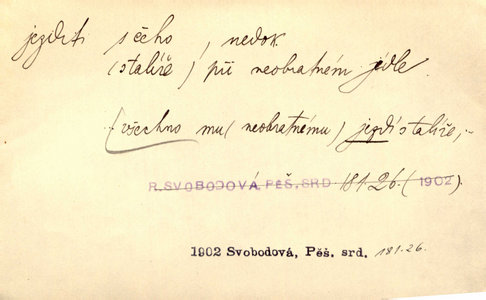 jezditi s čeho, nedok.
(s talíře) při neobratném jídle.
(všechno mu (neobratnému) jezdí s talíře,-
R. SVOBODOVÁ PĚŠ. SRD. 181.26. (1902).
1902 Svobodová, Pěš. srd. 181.26.